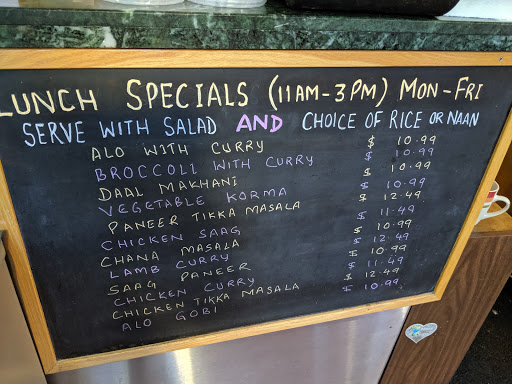 LUNCH SPECIALS (11AM-3PM) MON-FRI
SERVE WITH SALAD AND CHOICE OF RICE OR NAAN
ALO WITH CURRY $ 10.99
BROCCOLI WITH CURRY $ 10.99
DAAL MAKHANI $ 10.99
VEGETABLE KORMA $ 10.99
PANEER TIKKA MASALA $ 12.49
CHICKEN SAAG $ 11.49
CHANA MASALA $ 10.99
LAMB CURRY $ 12.49
SAAG PANEER $ 10.99
CHICKEN CURRY $ 11.49
CHICKEN TIKKA MASALA $ 12.49
ALO GOBI $ 10.99